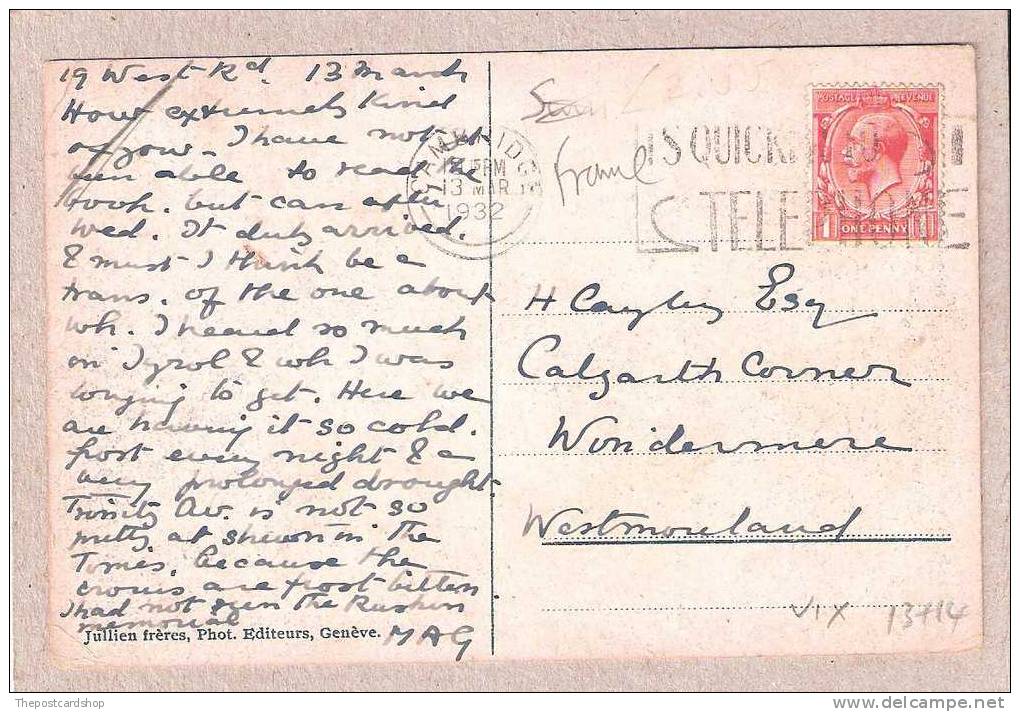 19 West Rd. 13 March
How extremely kind
of you. I have not yet
been able to read the
book, but can after
Wed. It duly arrived.
& must I think be a
trans. of the one about
wh. I heard so much
in Tyrol & wh I was
longing to get. Here we
are having it so cold.
frost every night & a
very prolonged drought.
Trinity Av. is not so
pretty as shewn in the
Times, because the
crocuses are frost bitten
I had not seen the Ruskin
memorial
MAG
Jullien frères, Phot. Editeurs, Genève.
CAMBRIDGE
12 15 PM
13 MAR
1932
IT'S QUICKER TO
TELEPHONE
POSTAGE REVENUE
1 ONE PENNY 1
Frame
H Cayley Esq
Calgarth Corner
Windermere
Westmoreland
VIX 13+14
Thepostcardshop
delcampe.net